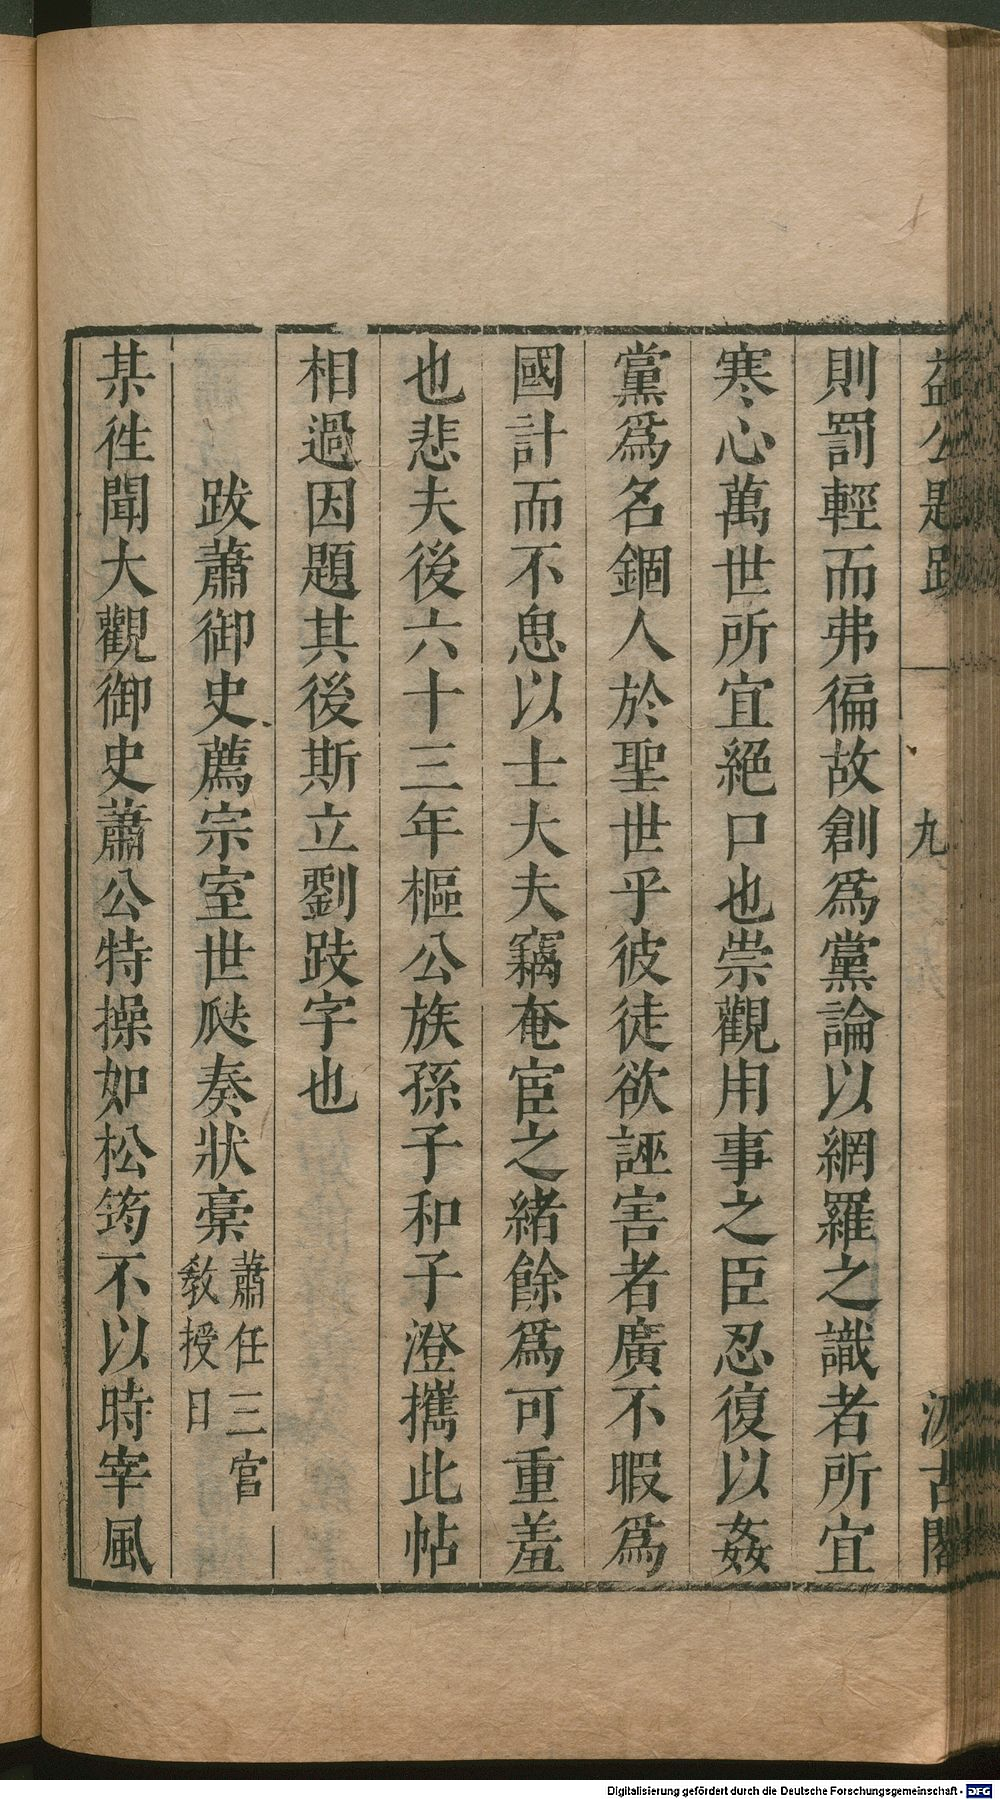 益公題跋 九 汲古閣
則罰輕而弗徧故創爲黨論以網羅之識者所宜
寒心萬世所宜絕口也崇觀用事之臣忍復以姦
黨爲名錮人於聖世乎彼徒欲誣害者廣不暇爲
國計而不思以士大夫竊奄宦之緒餘爲可重羞
也悲夫後六十三年樞公族孫子和子澄攜此帖
相過因題其後斯立劉跂字也
跋蕭御史薦宗室世㢮奏狀稾蕭任三官
敎授日
某徃聞大觀御史蕭公特操如松筠不以時宰風
Digitalisierung gefördert durch die Deutsche Forschungsgemeinschaft - DFG